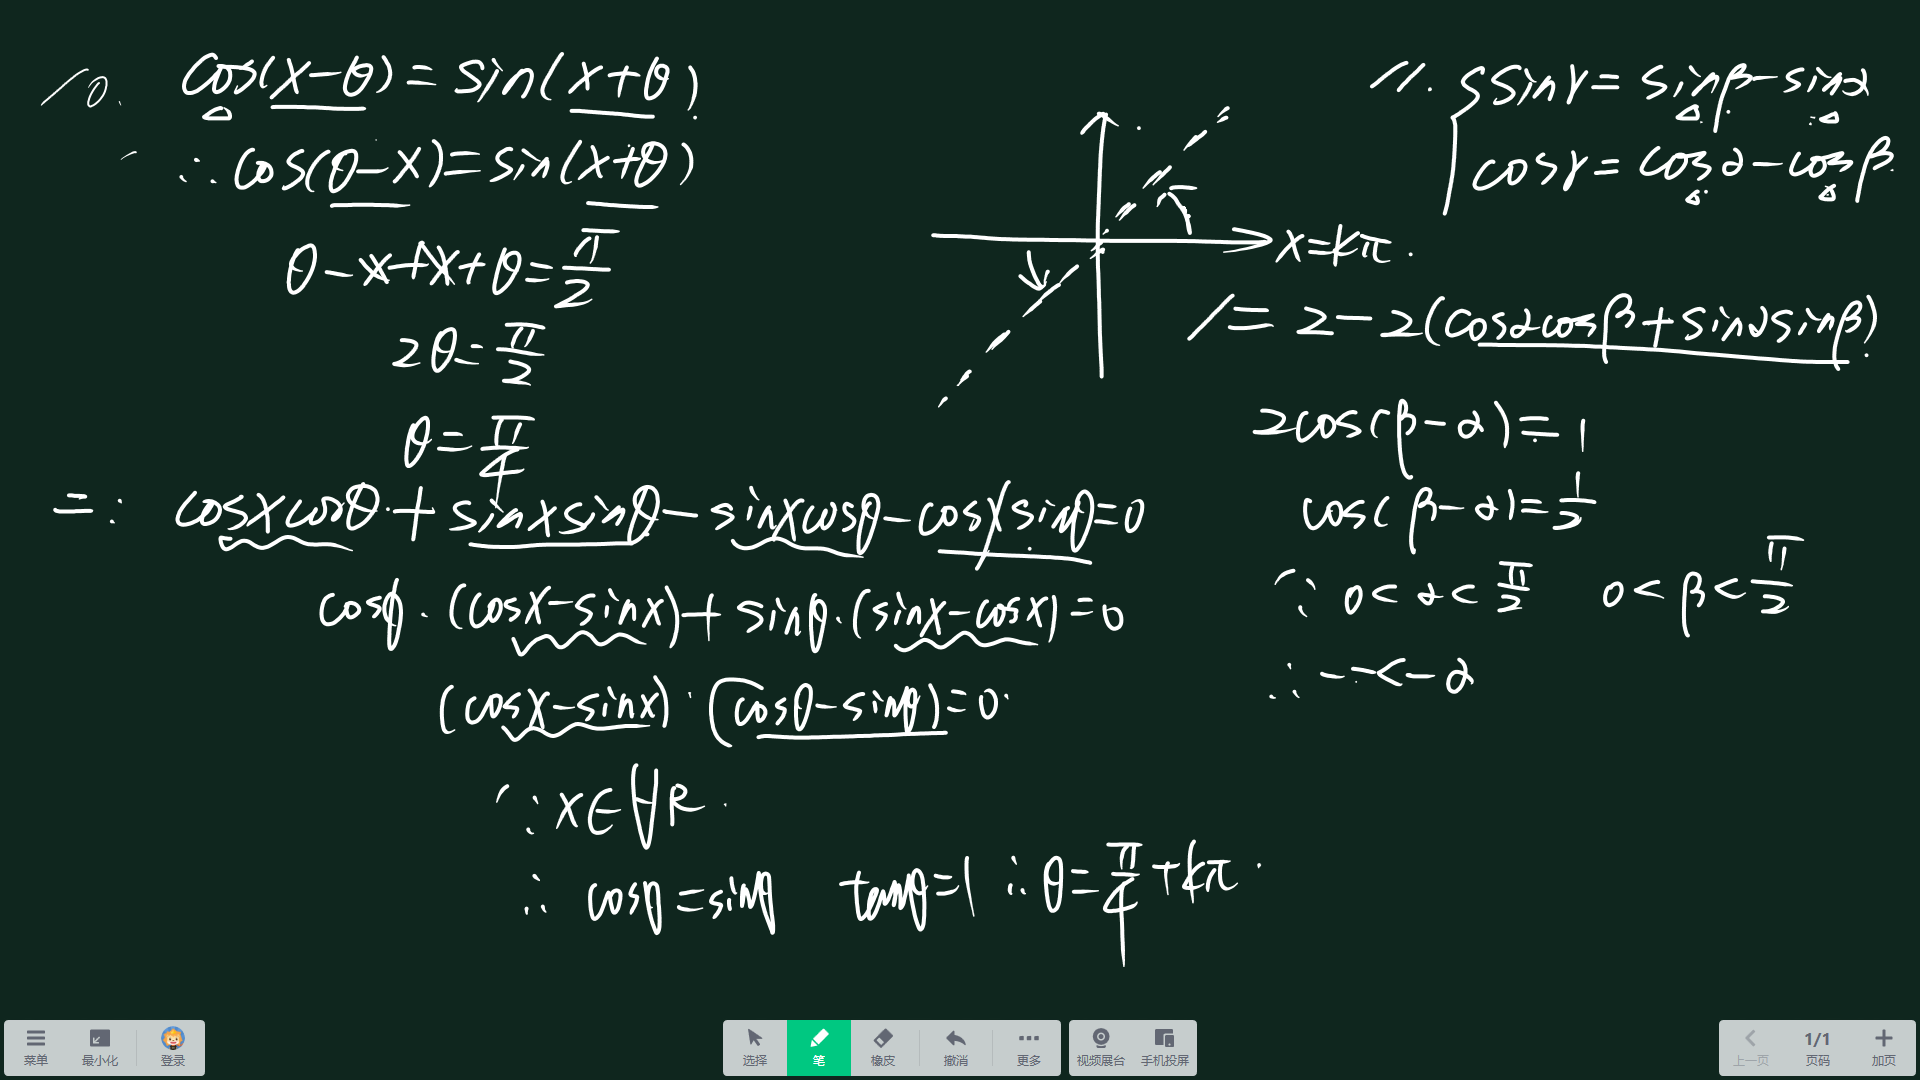 10. cos(x-θ)=sin(x+θ)
∴cos(θ-x)=sin(x+θ)
θ-x+x+θ=π/2
2θ=π/2
θ=π/4
二: cosxcosθ+sinxsinθ-sinxcosθ-cosxsinθ=0
cosθ·(cosx-sinx)+sinθ·(sinx-cosx)=0
(cosx-sinx)·(cosθ-sinθ)=0
∵x∈∀R
∴cosθ=sinθ tanθ=1 ∴θ=π/4+kπ
x=kπ.
11. { sinγ=sinβ-sinα
cosγ=cosα-cosβ
1=2-2(cosαcosβ+sinαsinβ)
2cos(β-α)=1
cos(β-α)=1/2
∵0<α<π/2 0<β<π/2
∴--<-α
菜单
最小化
登录
选择
笔
橡皮
撤消
更多
视频展台
手机投屏
上一页
1/1
页码
加页